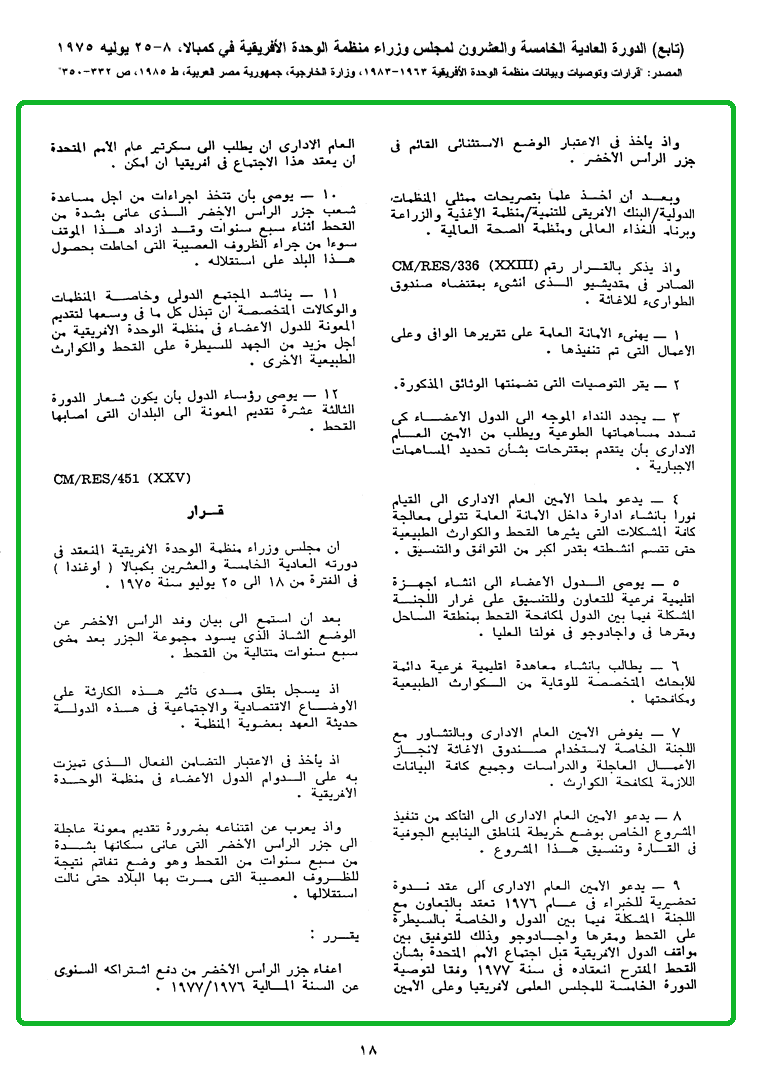 (تابع) الدورة العادية الخامسة والعشرون لمجلس وزراء منظمة الوحدة الأفريقية في كمبالا، ٨-٢٥ يوليه ١٩٧٥
المصدر: "قرارات وتوصيات وبيانات منظمة الوحدة الأفريقية ١٩٦٣-١٩٨٣، وزارة الخارجية، جمهورية مصر العربية، ط ١٩٨٥، ص ٣٣٢-٣٥٠"
واذ يأخذ فى الاعتبار الوضع الاستثنائى القائم فى
جزر الراس الأخضر .
وبعد ان أخذ علما بتصريحات ممثلى المنظمات
الدولية/البنك الأفريقى للتنمية/منظمة الاغذية والزراعة
وبرنامج الغذاء العالمى ومنظمة الصحة العالمية .
واذ يذكر بالقرار رقم CM/RES/336 (XXIII)
الصادر فى مقديشيو الذى انشىء بمقتضاه صندوق
الطوارىء للاغاثة .
١ — يهنىء الأمانة العامة على تقريرها الوافى وعلى
الأعمال التى تم تنفيذها .
٢ — يقر التوصيات التى تضمنتها الوثائق المذكورة.
٣ — يجدد النداء الموجه الى الدول الاعضاء كى
تسدد مساهماتها الطوعية ويطلب من الأمين العام
الادارى بأن يتقدم بمقترحات بشأن تحديد المساهمات
الاجبارية .
٤ — يدعو ملحا الأمين العام الادارى الى القيام
فورا بانشاء ادارة داخل الأمانة العامة تتولى معالجة
كافة المشكلات التى يثيرها القحط والكوارث الطبيعية
حتى تتسم انشطته بقدر اكبر من التوافق والتنسيق .
٥ — يوصى الدول الأعضاء الى انشاء اجهزة
اقليمية فرعية للتعاون وللتنسيق على غرار اللجنة
المشكلة فيما بين الدول لمكافحة القحط بمنطقة الساحل
ومقرها فى واجادوجو فى فولتا العليا .
٦ — يطالب بانشاء معاهدة اقليمية فرعية دائمة
للأبحاث المتخصصة للوقاية من الكوارث الطبيعية
ومكافحتها .
٧ — يفوض الأمين العام الادارى وبالتشاور مع
اللجنة الخاصة لاستخدام صندوق الاغاثة لانجاز
الأعمال العاجلة والدراسات وجميع كافة البيانات
اللازمة لمكافحة الكوارث .
٨ — يدعو الأمين العام الادارى الى التأكد من تنفيذ
المشروع الخاص بوضع خريطة لمناطق الينابيع الجوفية
فى القارة وتنسيق هذا المشروع .
٩ — يدعو الأمين العام الادارى الى عقد ندوة
تحضيرية للخبراء فى عام ١٩٧٦ تعقد بالتعاون مع
اللجنة المشكلة فيما بين الدول والخاصة بالسيطرة
على القحط ومقرها واجادوجو وذلك للتوفيق بين
مواقف الدول الأفريقية قبل اجتماع الأمم المتحدة بشأن
القحط المقترح انعقاده فى سنة ١٩٧٧ وفقا لتوصية
الدورة الخامسة للمجلس العلمى لأفريقيا وعلى الأمين
العام الادارى ان يطلب الى سكرتير عام الأمم المتحدة
ان يعقد هذا الاجتماع فى افريقيا ان امكن .
١٠ — يوصى بأن تتخذ اجراءات من اجل مساعدة
شعب جزر الراس الأخضر الذى عانى بشدة من
القحط اثناء سبع سنوات وقد ازداد هذا الموقف
سوءا من جراء الظروف العصيبة التى احاطت بحصول
هذا البلد على استقلاله .
١١ — يناشد المجتمع الدولى وخاصة المنظمات
والوكالات المتخصصة ان تبذل كل ما فى وسعها لتقديم
المعونة للدول الاعضاء فى منظمة الوحدة الأفريقية من
اجل مزيد من الجهد للسيطرة على القحط والكوارث
الطبيعية الأخرى .
١٢ — يوصى رؤساء الدول بأن يكون شعار الدورة
الثالثة عشرة تقديم المعونة الى البلدان التى اصابها
القحط .
CM/RES/451 (XXV)
قرار
ان مجلس وزراء منظمة الوحدة الأفريقية المنعقد فى
دورته العادية الخامسة والعشرين بكمبالا ( اوغندا )
فى الفترة من ١٨ الى ٢٥ يوليو سنة ١٩٧٥ .
بعد ان استمع الى بيان وفد الراس الأخضر عن
الوضع الشاذ الذى يسود مجموعة الجزر بعد مضى
سبع سنوات متتالية من القحط .
اذ يسجل بقلق مدى تأثير هذه الكارثة على
الأوضاع الاقتصادية والاجتماعية فى هذه الدولة
حديثة العهد بعضوية المنظمة .
اذ يأخذ فى الاعتبار التضامن الفعال الذى تميزت
به على الدوام الدول الأعضاء فى منظمة الوحدة
الأفريقية .
واذ يعرب عن اقتناعه بضرورة تقديم معونة عاجلة
الى جزر الراس الأخضر التى عانى سكانها بشدة
من سبع سنوات من القحط وهو وضع تفاقم نتيجة
للظروف العصيبة التى مرت بها البلاد حتى نالت
استقلالها .
يقرر :
اعفاء جزر الراس الأخضر من دفع اشتراكه السنوى
عن السنة المالية ١٩٧٧/١٩٧٦ .
١٨